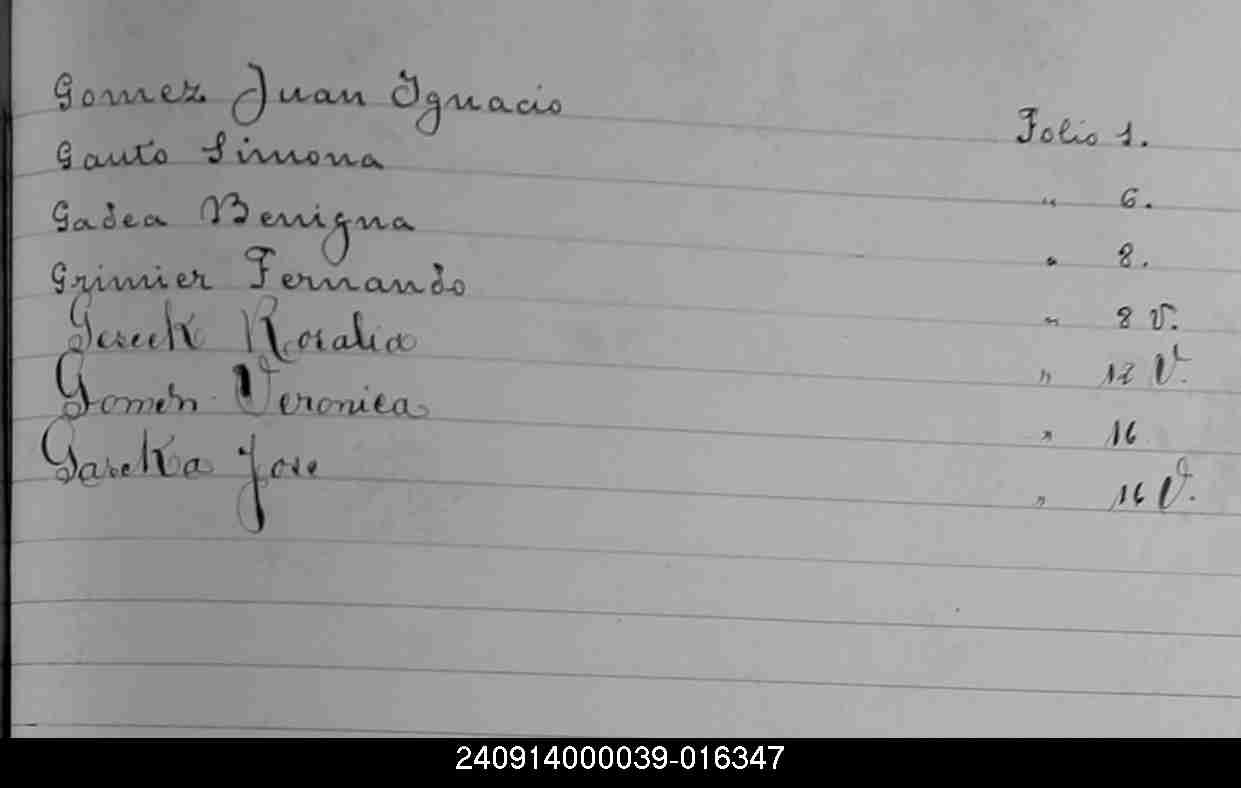 Gomez Juan Ignacio Folio 1.
Gauto Simona " 6.
Gadea Benigna " 8.
Grimier Fernando " 8 V.
Rosalia " 12 V.
Veronica " 16
Jose " 16 V.
240914000039-016347